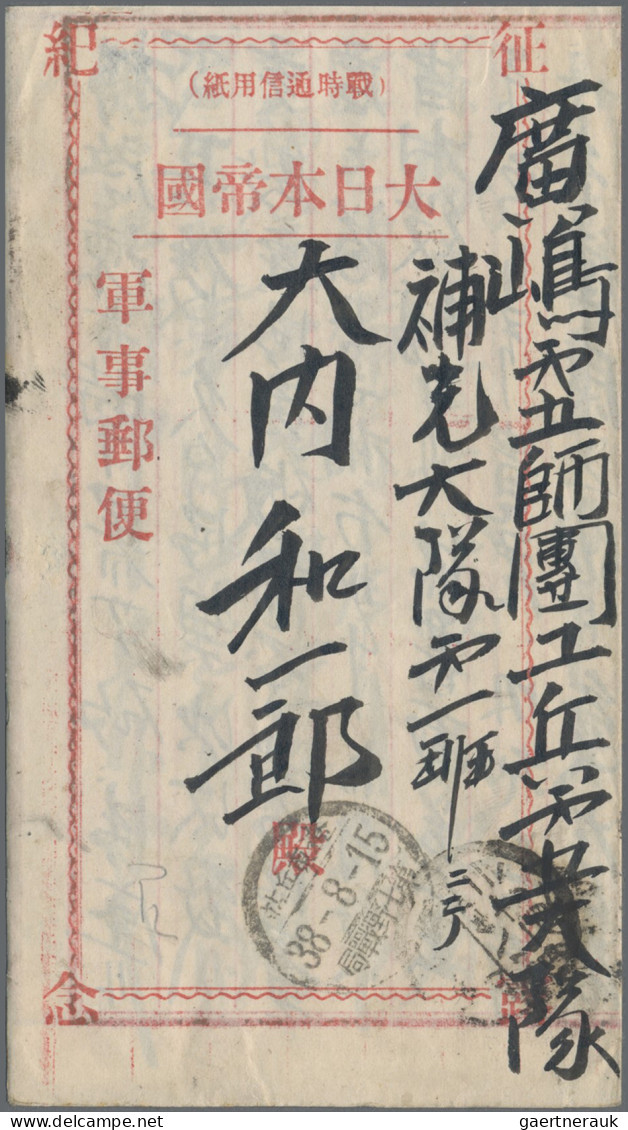 征
紀
念
(戰時通信用紙)
大日本帝國
軍事郵便
廣嶋㐧五師團工兵㐧五大隊
補充大隊㐧一班
大内和一郎
殿
38-8-15
gaertnerauk